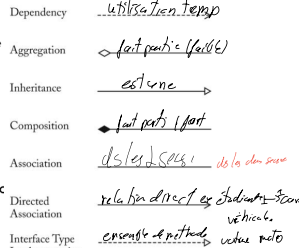 Dependency utilisation temp
Aggregation fait partie (faible)
Inheritance est une
Composition fait partie / fort
Association ds les 2 sens ds les deux sens
Directed relation direct ex étudiant
Association véhicule
Interface Type ensemble de méthode moto